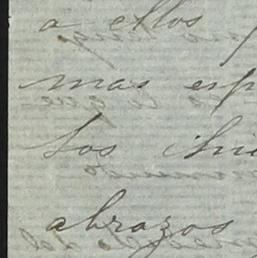 a ellos
mas esp
Los chi
abrazos